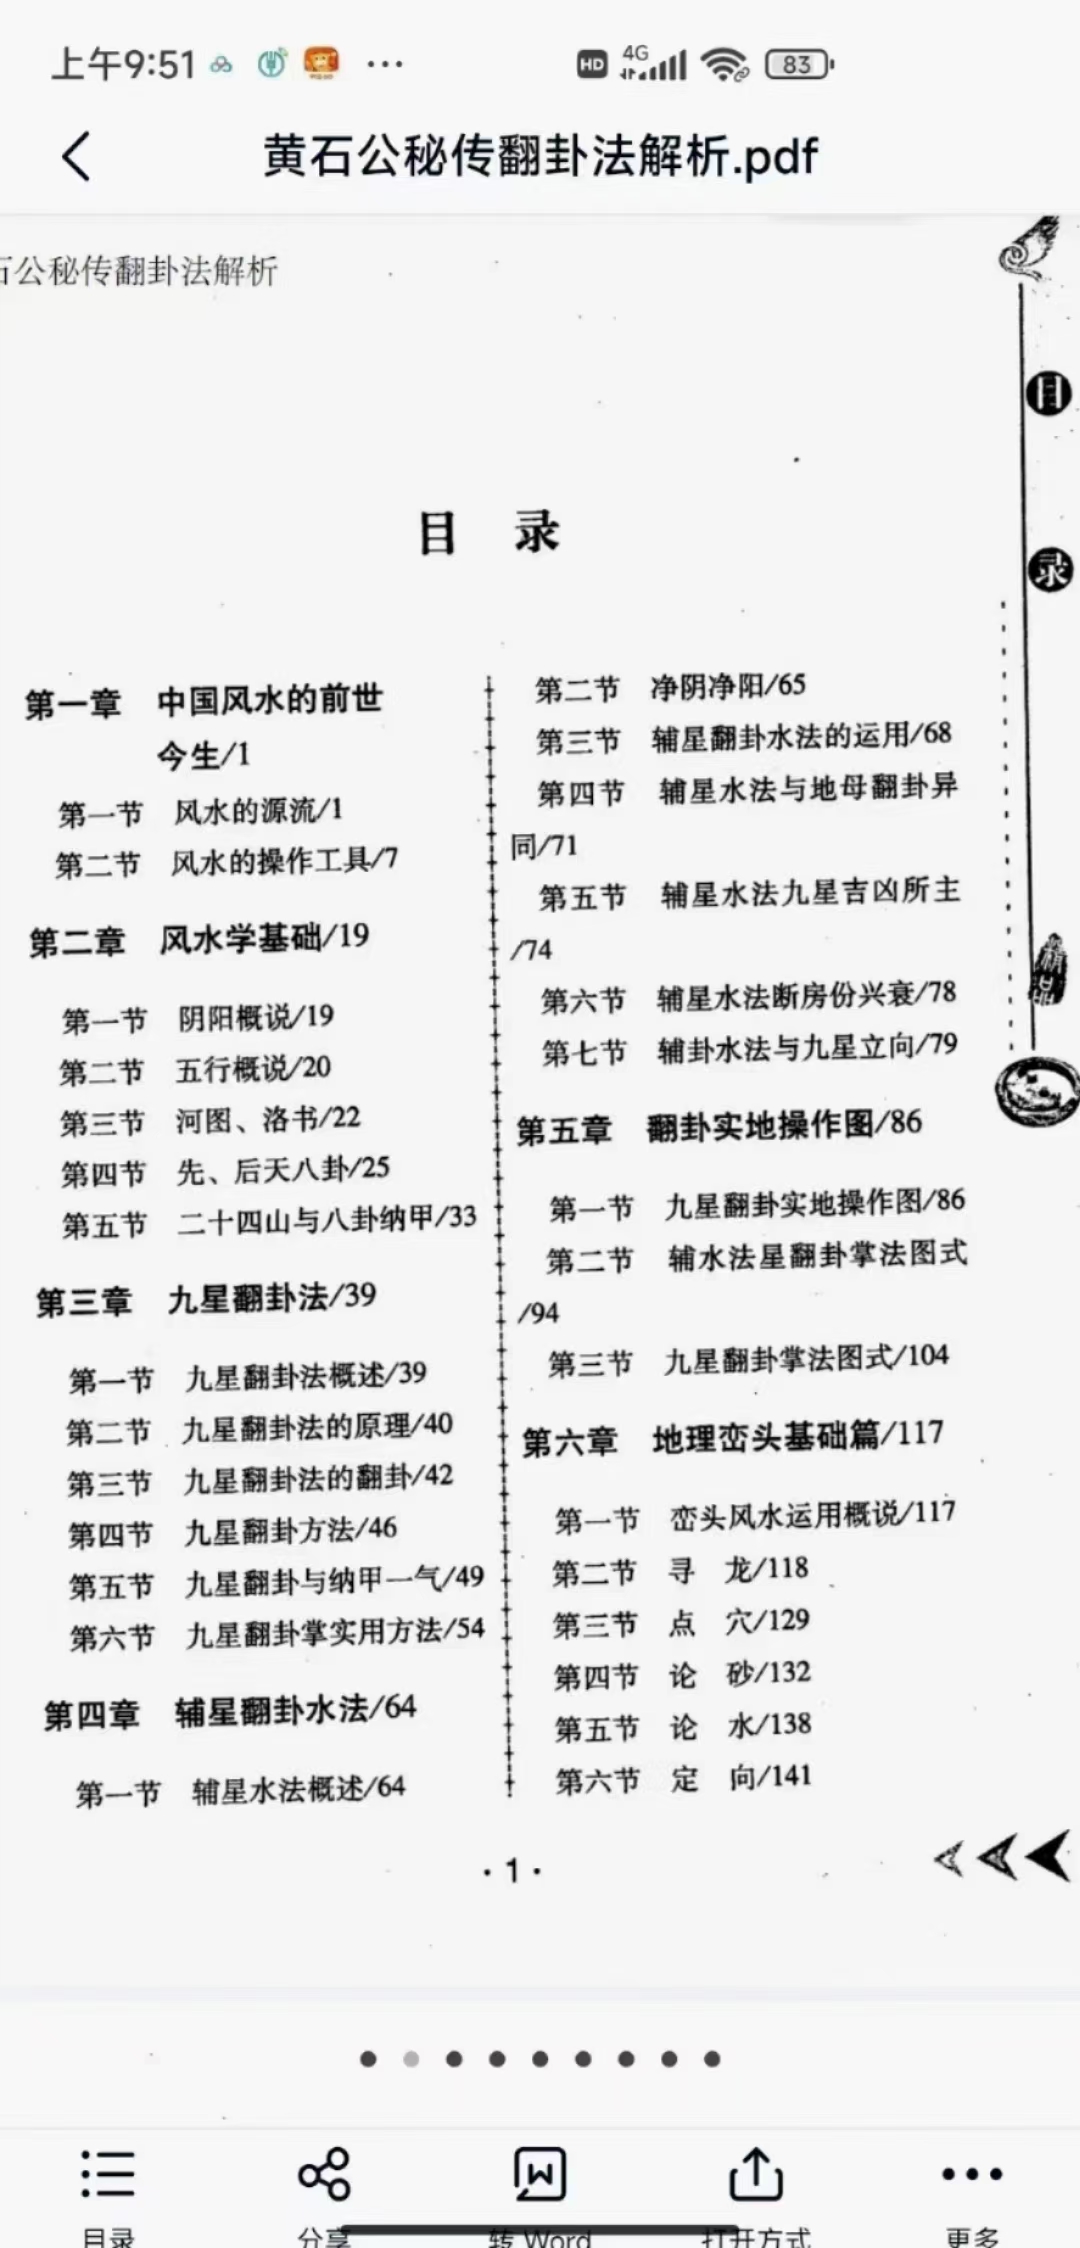 上午9:51
HD 4G 83
黄石公秘传翻卦法解析.pdf
石公秘传翻卦法解析
目
录
目 录
第一章 中国风水的前世
今生/1
第一节 风水的源流/1
第二节 风水的操作工具/7
第二章 风水学基础/19
第一节 阴阳概说/19
第二节 五行概说/20
第三节 河图、洛书/22
第四节 先、后天八卦/25
第五节 二十四山与八卦纳甲/33
第三章 九星翻卦法/39
第一节 九星翻卦法概述/39
第二节 九星翻卦法的原理/40
第三节 九星翻卦法的翻卦/42
第四节 九星翻卦方法/46
第五节 九星翻卦与纳甲一气/49
第六节 九星翻卦掌实用方法/54
第四章 辅星翻卦水法/64
第一节 辅星水法概述/64
第二节 净阴净阳/65
第三节 辅星翻卦水法的运用/68
第四节 辅星水法与地母翻卦异
同/71
第五节 辅星水法九星吉凶所主
/74
第六节 辅星水法断房份兴衰/78
第七节 辅卦水法与九星立向/79
第五章 翻卦实地操作图/86
第一节 九星翻卦实地操作图/86
第二节 辅水法星翻卦掌法图式
/94
第三节 九星翻卦掌法图式/104
第六章 地理峦头基础篇/117
第一节 峦头风水运用概说/117
第二节 寻 龙/118
第三节 点 穴/129
第四节 论 砂/132
第五节 论 水/138
第六节 定 向/141
·1·
目录 分享 转 Word 打开方式 更多